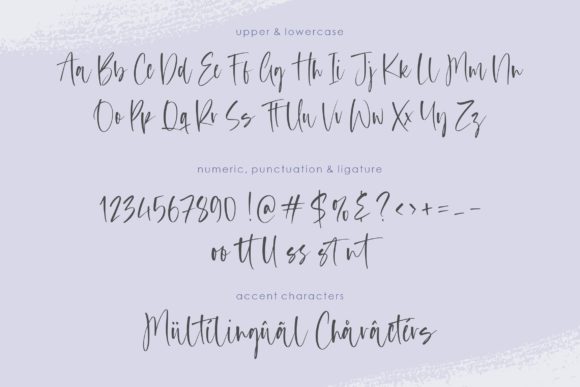 upper & lowercase
Aa Bb Cc Dd Ee Ff Gg Hh Ii Jj Kk Ll Mm Nn
Oo Pp Qq Rr Ss Tt Uu Vv Ww Xx Yy Zz
numeric, punctuation & ligature
1234567890 !@#$%&?<>+=_-
oo tt ll ss st nt
accent characters
Mültilingûãl Chåråctérs